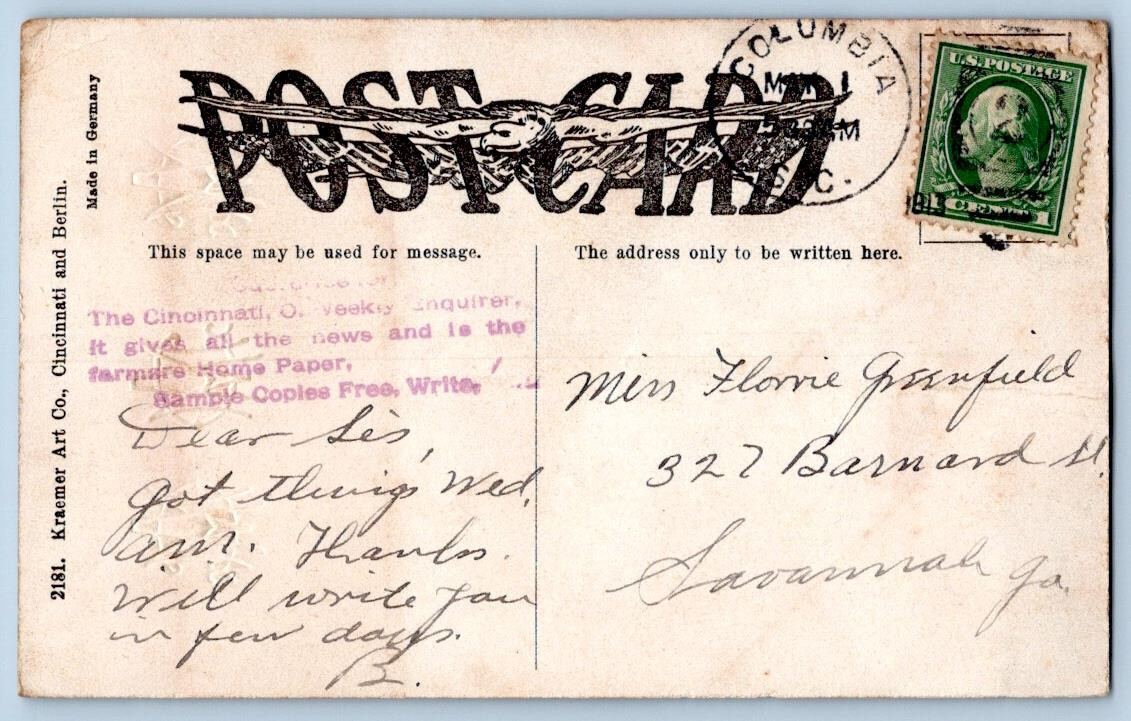 POST CARD
Made in Germany
2181. Kraemer Art Co., Cincinnati and Berlin.
COLUMBIA
1
M
S.C.
U.S. POSTAGE
1 CENTS 1
This space may be used for message.
The Cincinnati, O. Weekly Enquirer.
It gives all the news and is the
farmers Home Paper,
Sample Copies Free, Write,
Dear Sis,
Got things Wed.
a.m. Thanks.
Will write you
in few days.
B.
The address only to be written here.
Miss Florrie Greenfield
327 Barnard St.
Savannah Ga.